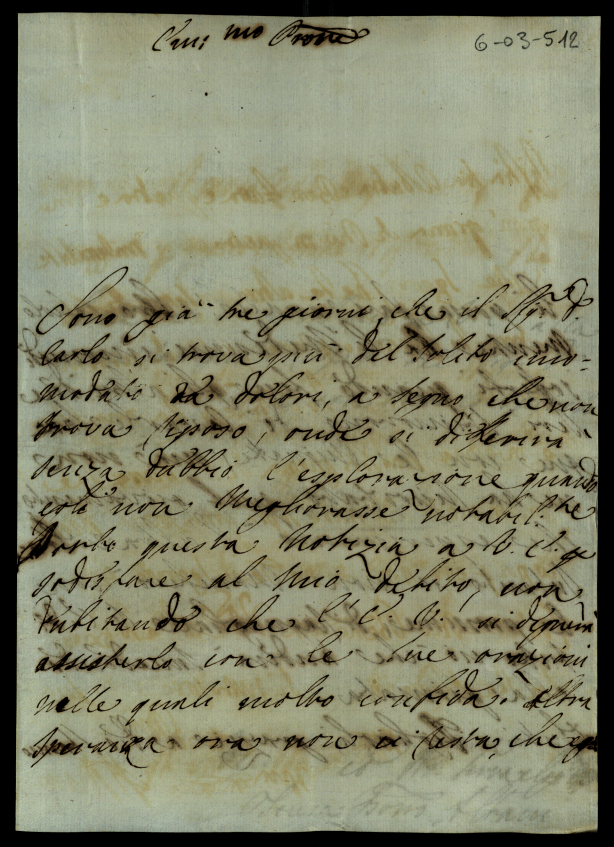 Em:mo Prone
6-03-512
Sono già tre giorni, che il Sig:r D.
Carlo si trova più del solito inco=
modato da dolori, a segno che non
trova riposo, onde si differirà
senza dubbio l'esplorazione quando
egli non megliorasse notabil:te
Porto questa notizia a V. E. p
sodisfare al mio debito, non
dubitando che l'E. V. si degnerà
assisterlo con le sue orazioni
nelle quali molto confida. Altra
speranza ora non ci resta, che